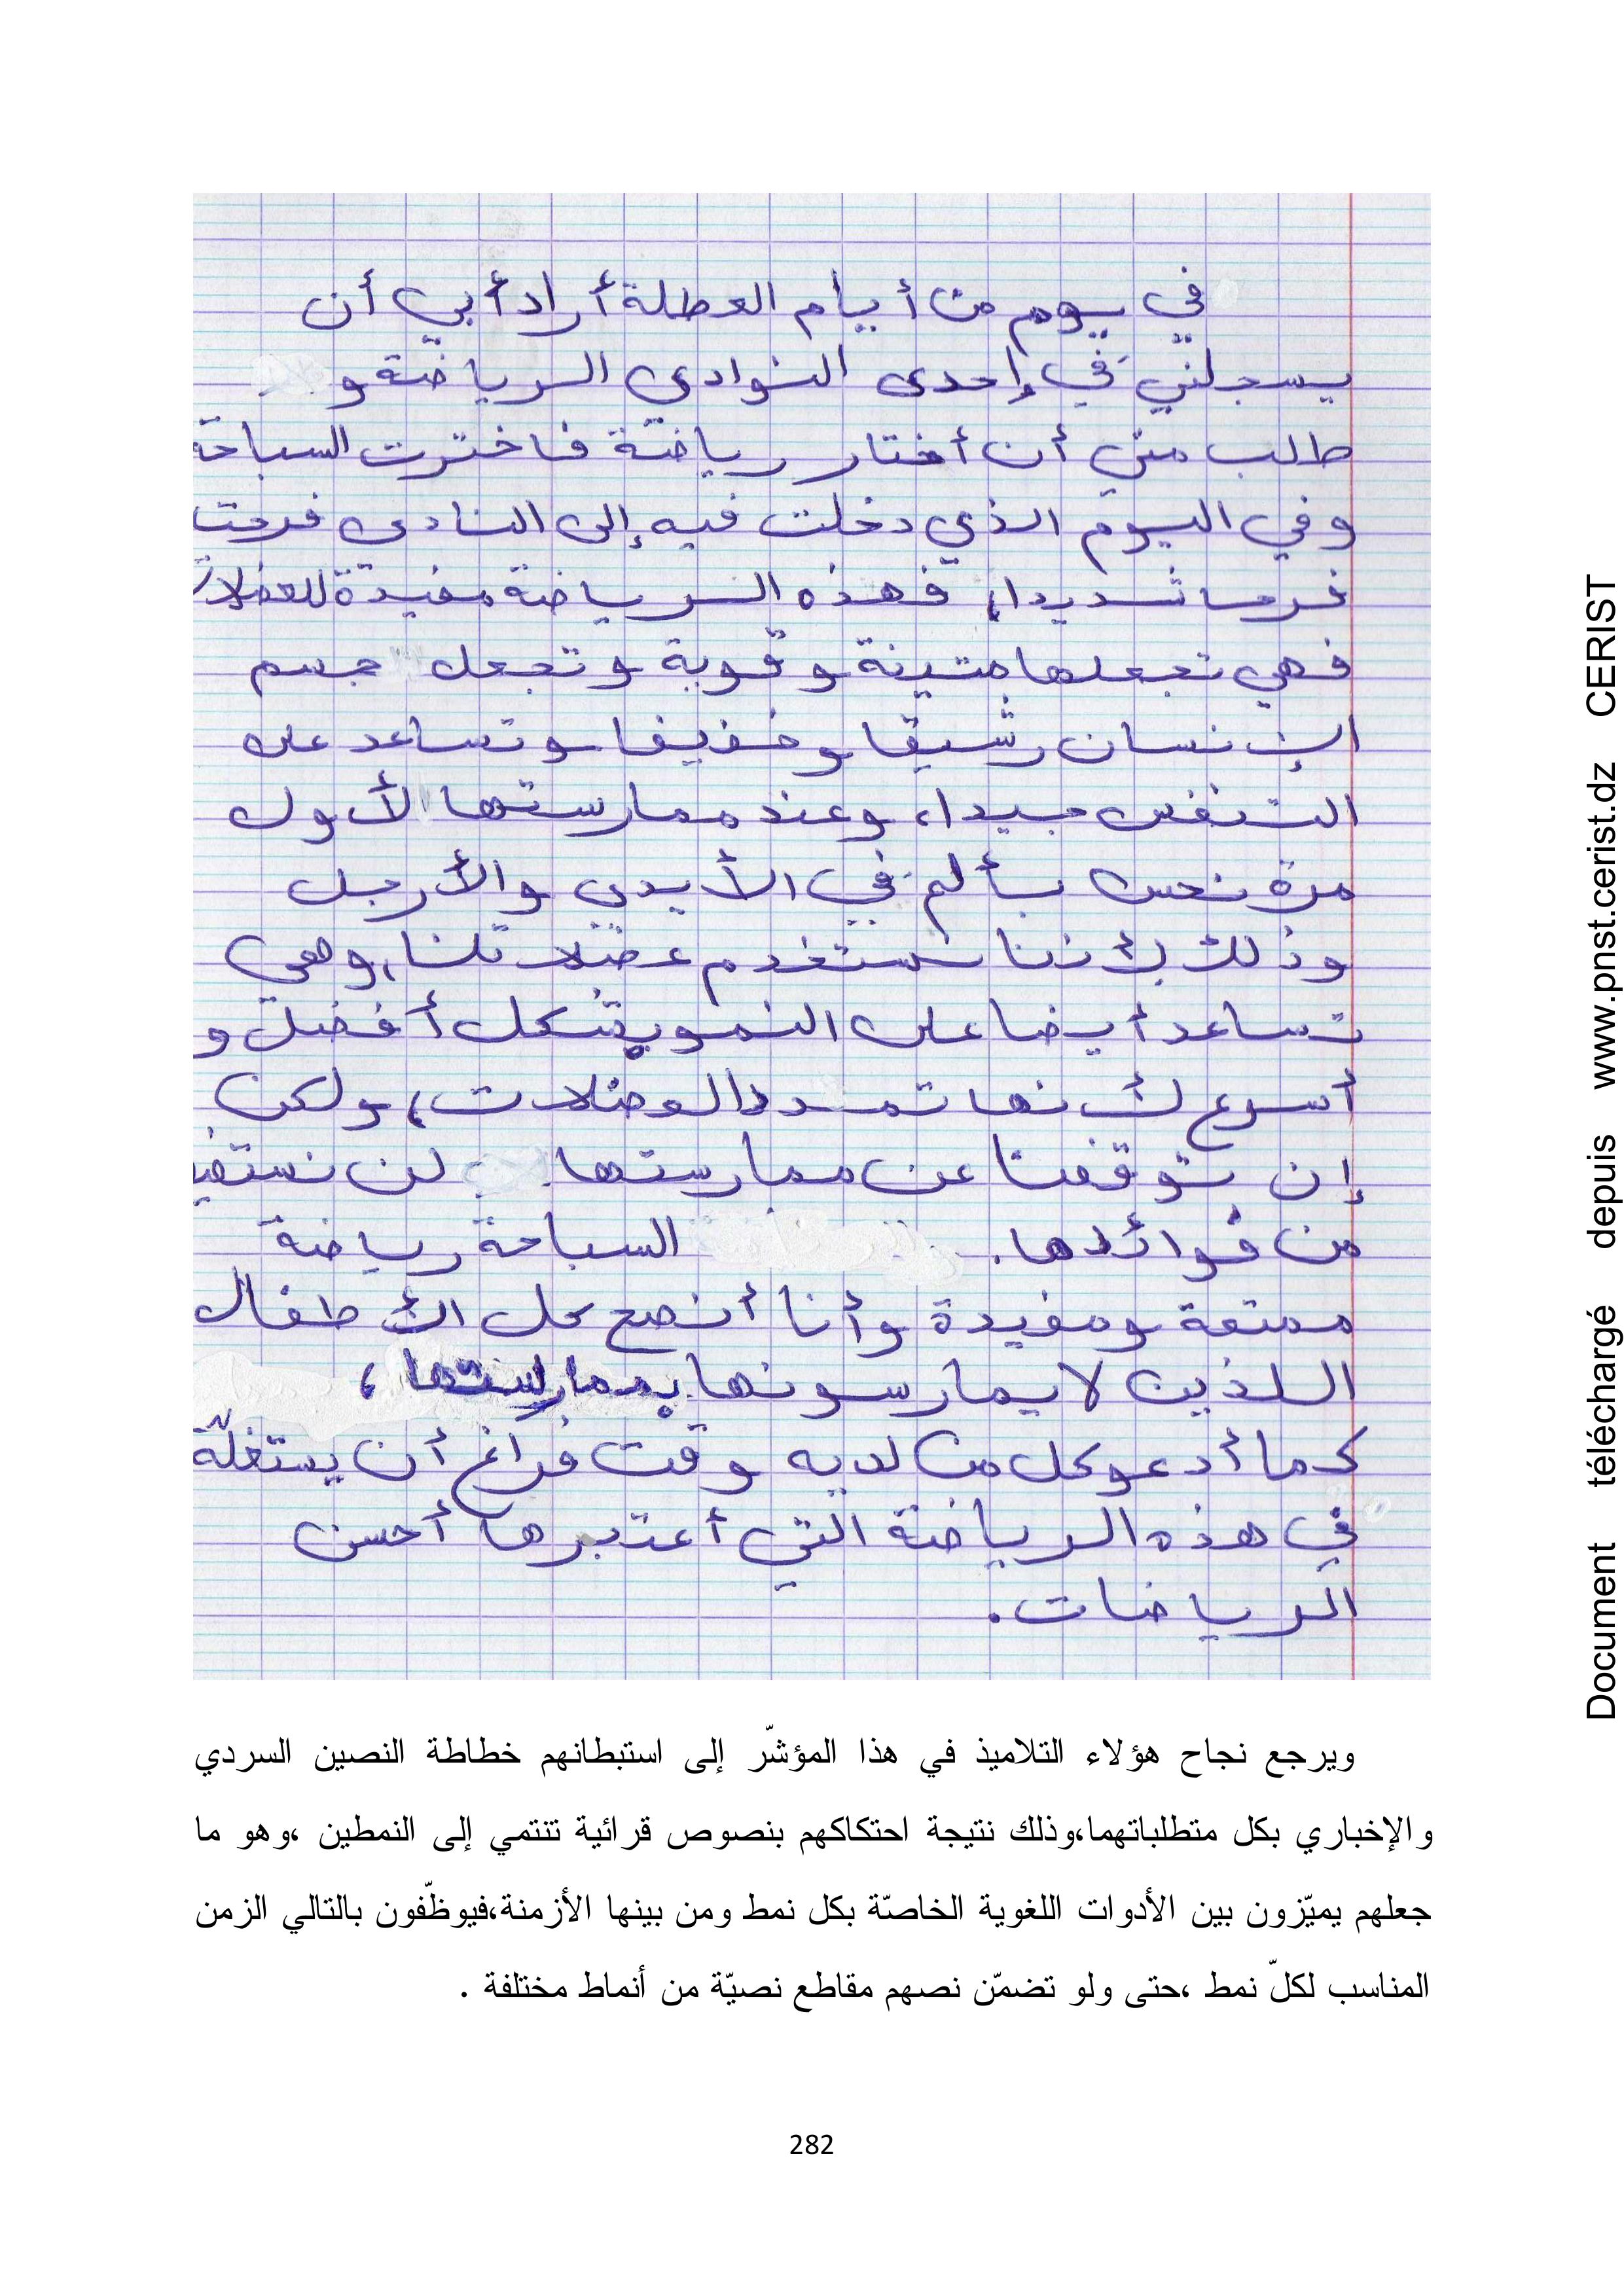 في يوم من أيام العطلة أراد أبي أن
يسجلني في إحدى النوادي الرياضة و
طالب مني أن أختار رياضة فاخترت السباحة
وفي اليوم الذي دخلت فيه إلى النادي فرحت
فرحا شديدا، فهذه الرياضة مفيدة للعضلات
فهي تجعلها متينة و قوية و تجعل جسم
الإنسان رشيقا و خفيفا و تساعد على
التنفس جيدا، وعند ممارستها لأول
مرة نحس بألم في الأيدي والأرجل
وذلك لأننا نستخدم عضلاتنا، وهي
تساعد أيضا على النمو بشكل أفضل و
أسرع لأنها تمدد العضلات، ولكن
إن توقفنا عن ممارستها لن نستفيد
من فوائدها. السباحة رياضة
ممتعة ومفيدة وأنا أنصح كل الأطفال
اللذين لا يمارسونها بممارستها،
كما أدعو كل من لديه وقت فراغ أن يستغلّه
في هذه الرياضة التي أعتبرها أحسن
الرياضات.
ويرجع نجاح هؤلاء التلاميذ في هذا المؤشّر إلى استبطانهم خطاطة النصين السردي
والإخباري بكل متطلباتهما،وذلك نتيجة احتكاكهم بنصوص قرائية تنتمي إلى النمطين ،وهو ما
جعلهم يميّزون بين الأدوات اللغوية الخاصّة بكل نمط ومن بينها الأزمنة،فيوظّفون بالتالي الزمن
المناسب لكلّ نمط ،حتى ولو تضمّن نصهم مقاطع نصيّة من أنماط مختلفة .
282
Document téléchargé depuis www.pnst.cerist.dz CERIST